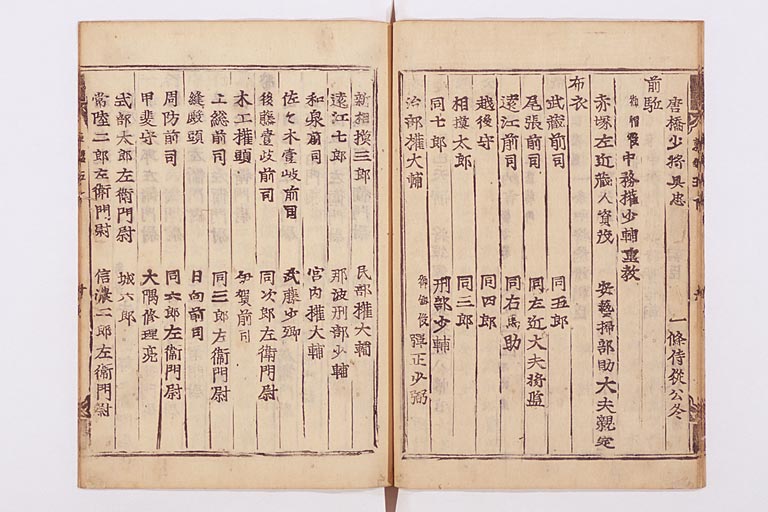 唐橋少将具忠 一條侍從公冬
前駈
中務權少輔重教
赤塚左近蔵人資茂 安藝掃部助大夫親定
布衣
武藏前司 同五郎
尾張前司 同左近大夫将監
遠江前司 同右馬助
越後守 同四郎
相摸太郎 同三郎
同七郎 刑部少輔
治部權大輔 弾正少弼
新相摸三郎 民部權大輔
遠江七郎 那波刑部少輔
和泉前司 宮内權大輔
佐々木壹岐前司 武藤少卿
後藤壹岐前司 同次郎左衛門尉
木工權頭 伊賀前司
上総前司 同三郎左衛門尉
縫殿頭 日向前司
周防前司 同六郎左衛門尉
甲斐守 大隅修理亮
式部太郎左衛門尉 城六郎
常陸二郎左衛門尉 信濃二郎左衛門尉